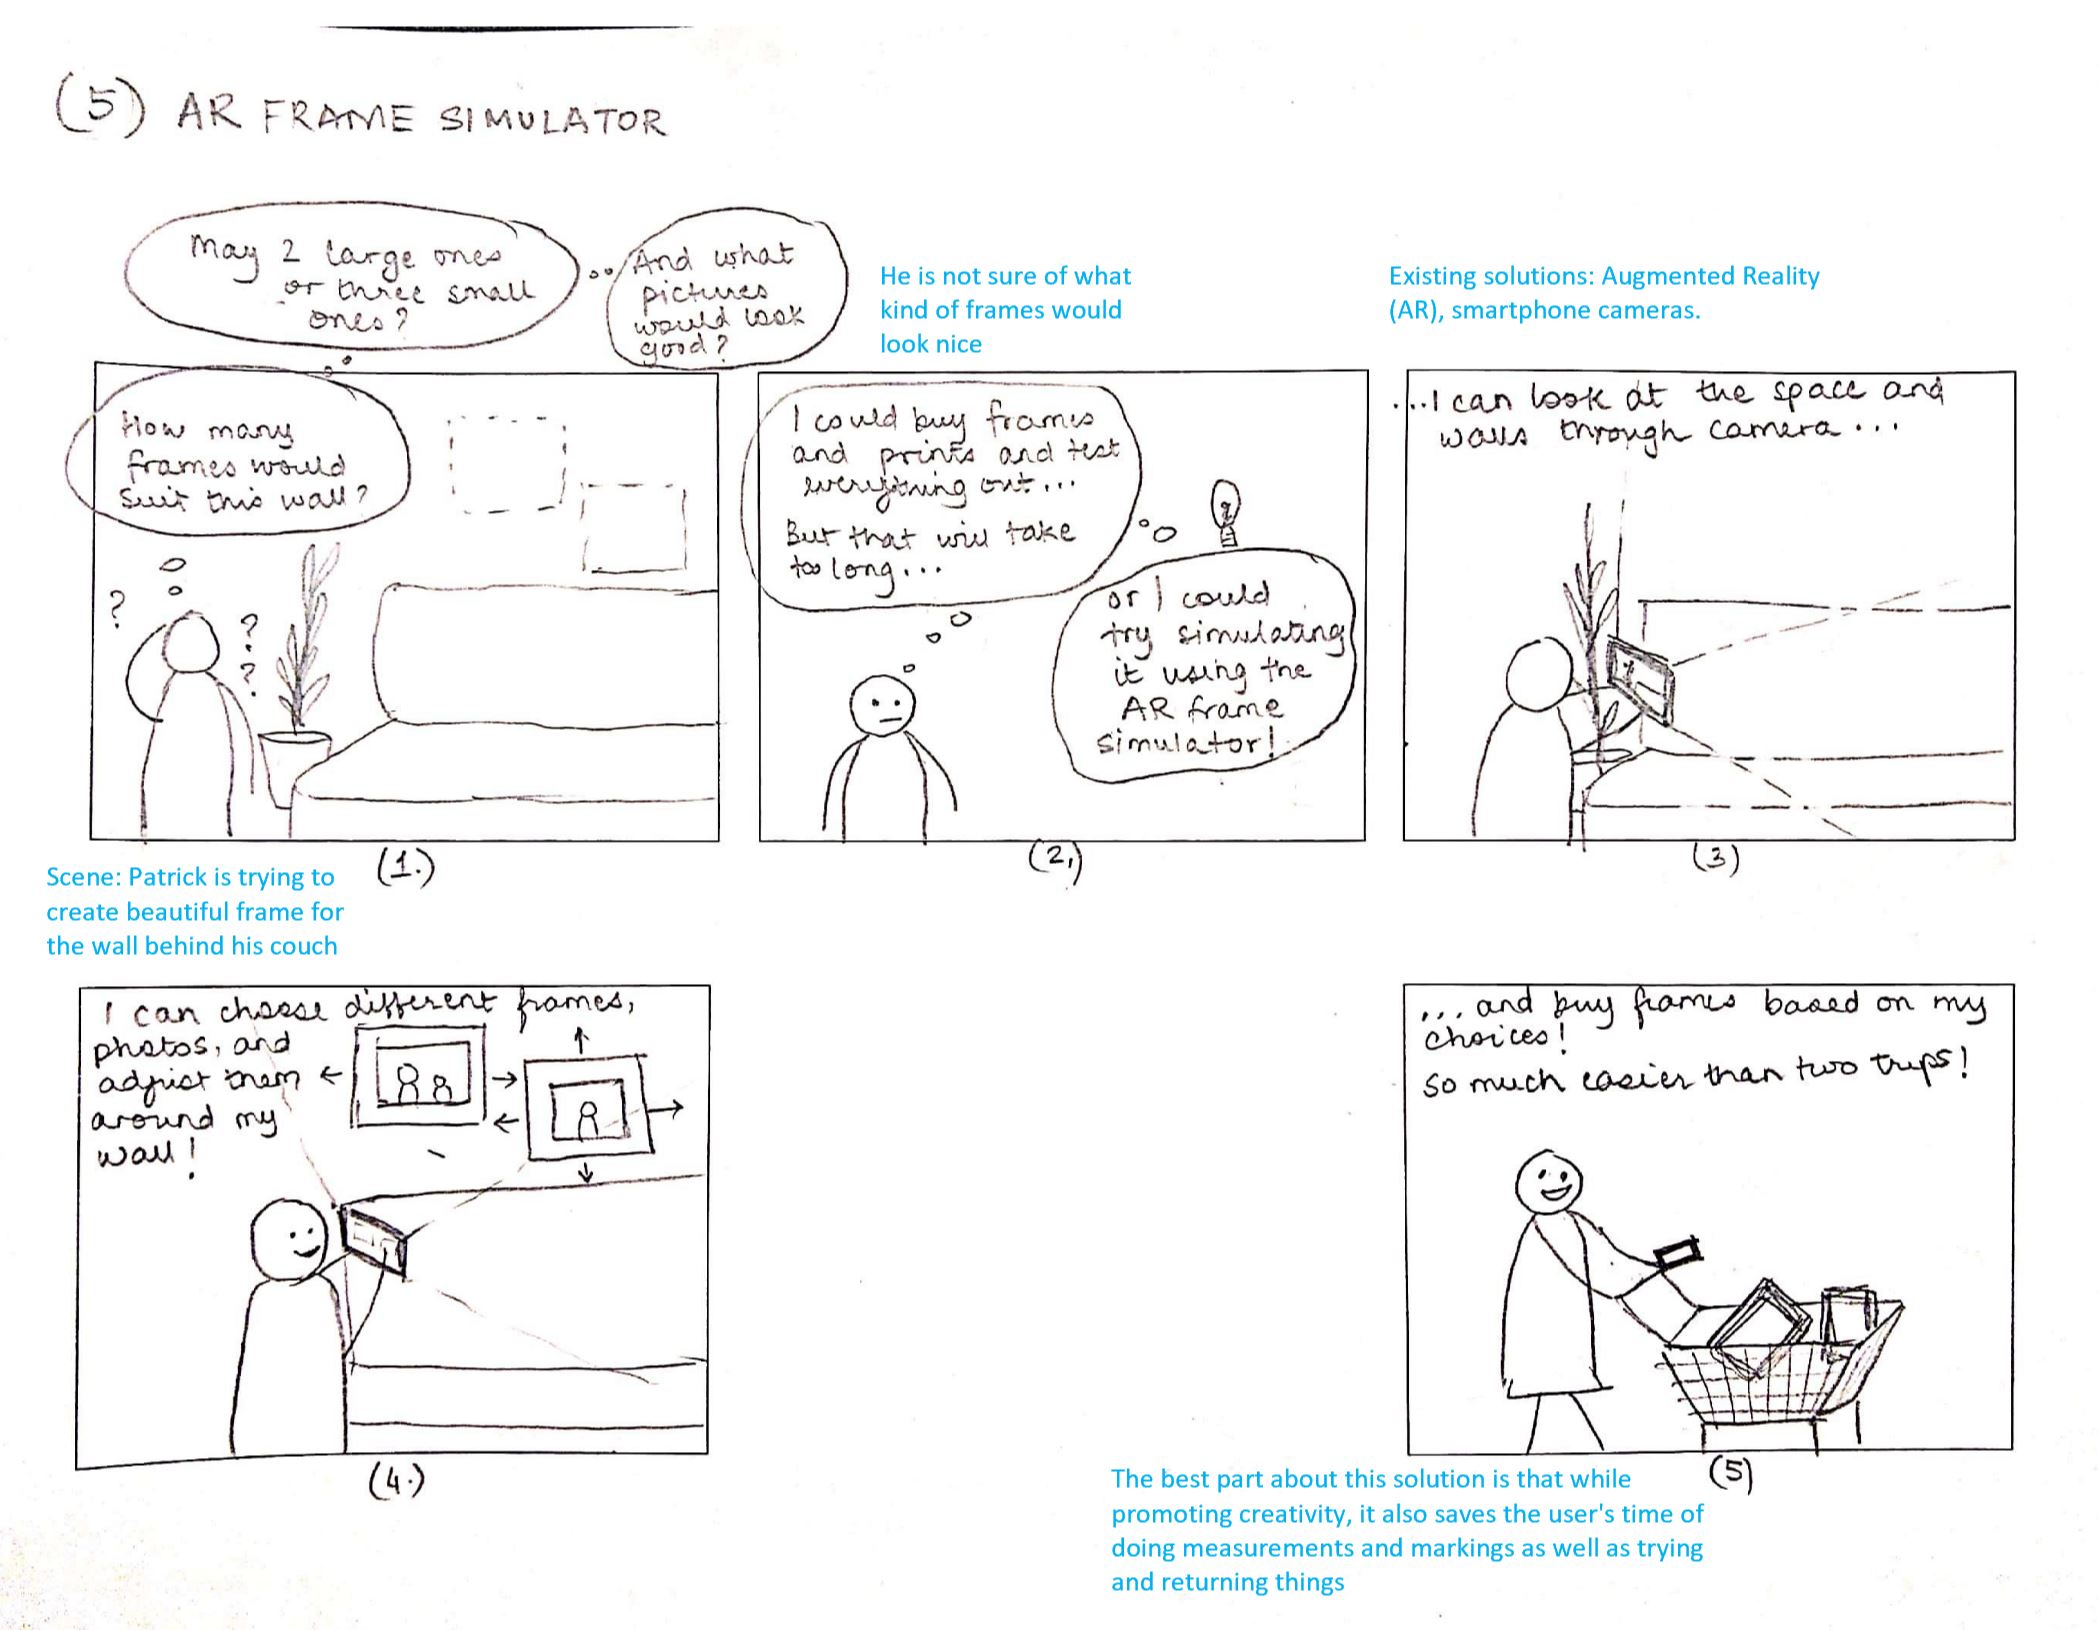 (5) AR FRAME SIMULATOR
How many
frames would
suit this wall?
May 2 large ones
or three small
ones?
And what
pictures
would look
good?
?
?
?
?
(1.)
Scene: Patrick is trying to
create beautiful frame for
the wall behind his couch
He is not sure of what
kind of frames would
look nice
I could buy frames
and prints and test
everything out...
But that will take
too long...
or I could
try simulating
it using the
AR frame
simulator!
(2.)
Existing solutions: Augmented Reality
(AR), smartphone cameras.
...I can look at the space and
walls through camera...
(3)
I can choose different frames,
photos, and
adjust them
around my
wall!
(4.)
... and buy frames based on my
choices!
so much easier than two trips!
(5)
The best part about this solution is that while
promoting creativity, it also saves the user's time of
doing measurements and markings as well as trying
and returning things